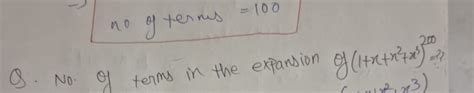 no of terms = 100
Q. No. of terms in the expansion of (1+x+x²+x³)²⁰⁰ = ?
x², x³)